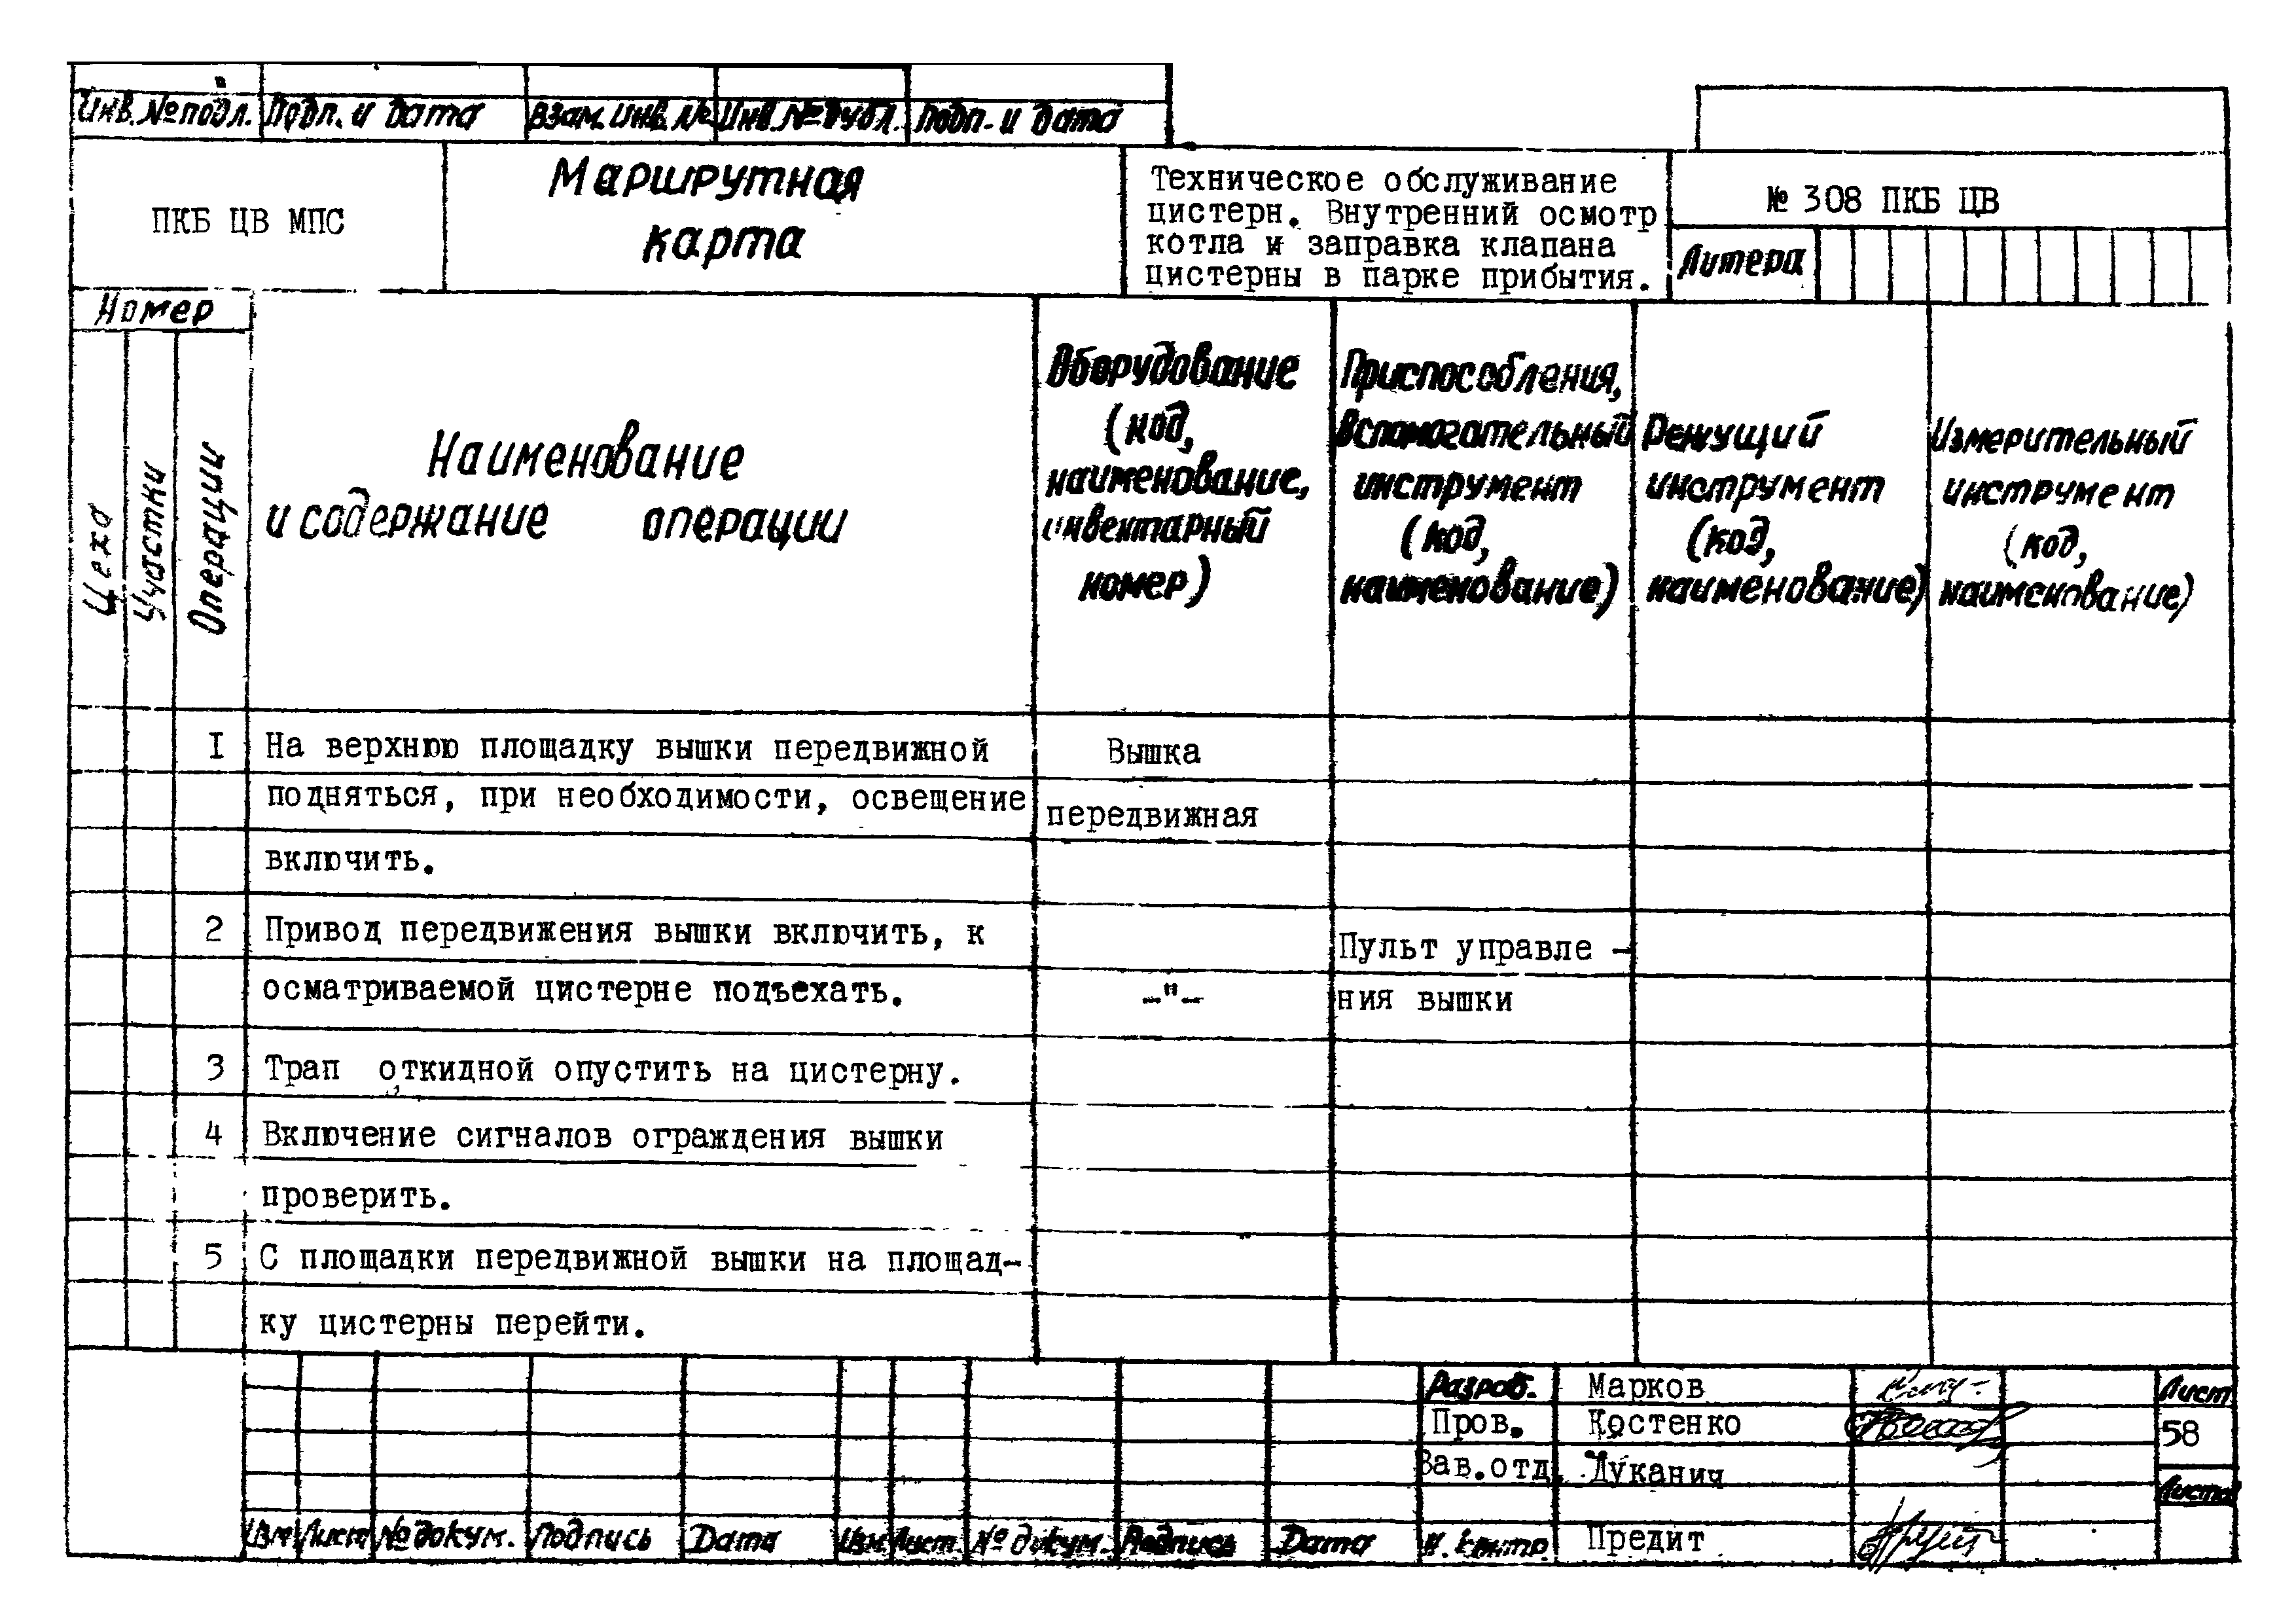 Инв. № подл. Подп. и дата Взам. инв. № Инв. № дубл. Подп. и дата
ПКБ ЦВ МПС
Маршрутная
карта
Техническое обслуживание
цистерн. Внутренний осмотр
котла и заправка клапана
цистерны в парке прибытия.
№ 308 ПКБ ЦВ
Литера
Номер
Цеха
Участки
Операции
Наименование
и содержание операции
Оборудование
(код,
наименование,
инвентарный
номер)
Приспособления,
вспомогательный
инструмент
(код,
наименование)
Режущий
инструмент
(код,
наименование)
Измерительный
инструмент
(код,
наименование)
I На верхнюю площадку вышки передвижной Вышка
подняться, при необходимости, освещение передвижная
включить.
2 Привод передвижения вышки включить, к Пульт управле -
осматриваемой цистерне подъехать. -"- ния вышки
3 Трап откидной опустить на цистерну.
4 Включение сигналов ограждения вышки
проверить.
5 С площадки передвижной вышки на площад-
ку цистерны перейти.
Разраб. Марков Лист
Пров. Костенко 58
Зав.отд. Луканич
Листов
Изм Лист № докум. Подпись Дата Изм Лист. № докум. Подпись Дата Н. контр Предит